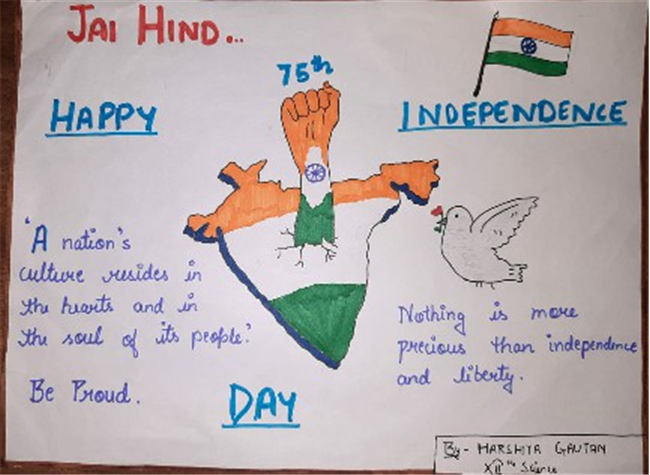 JAI HIND...
75th
HAPPY
INDEPENDENCE
'A nation's
culture resides in
the hearts and in
the soul of its people.'
Be Proud.
Nothing is more
precious than independence
and liberty.
DAY
By- HARSHITA GAUTAM
XIIth Science